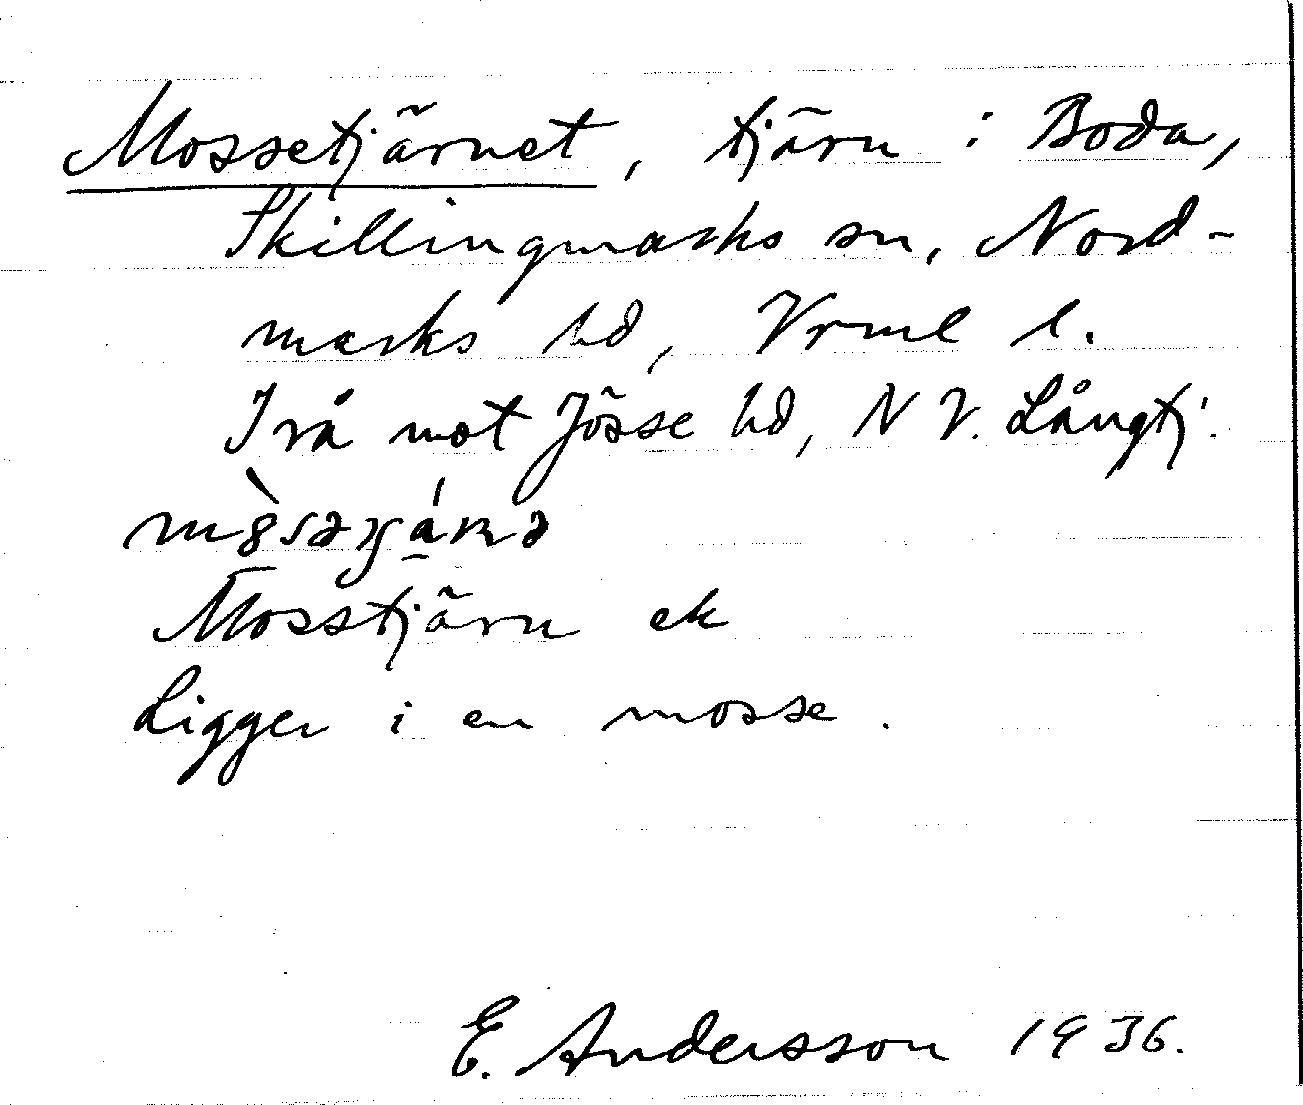 Mossetjärnet, tjärn i Boda,
Skillingmarks sn, Nord-
marks hd, Vrml l.
I rå mot Jösse hd, N V. Långtj.
Mosstjärn ek
Ligger i en mosse.
E. Andersson 1936.